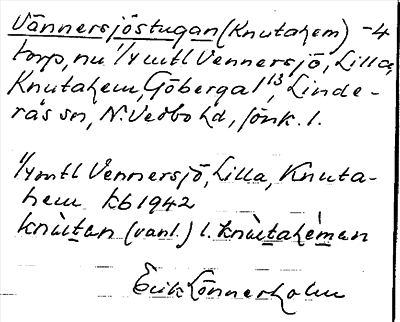 Vännersjöstugan (Knutahem) -4
torp, nu 1/4 mtl Vennersjö, Lilla,
Knutahem, Göbergal 13, Linde-
rås sn, N. Vedbo hd, Jönk. l.
1/4 mtl Vennersjö, Lilla, Knuta-
hem kb 1942
knùtan (vanl.) l. knùtahe̍man
Erik Lönnerholm